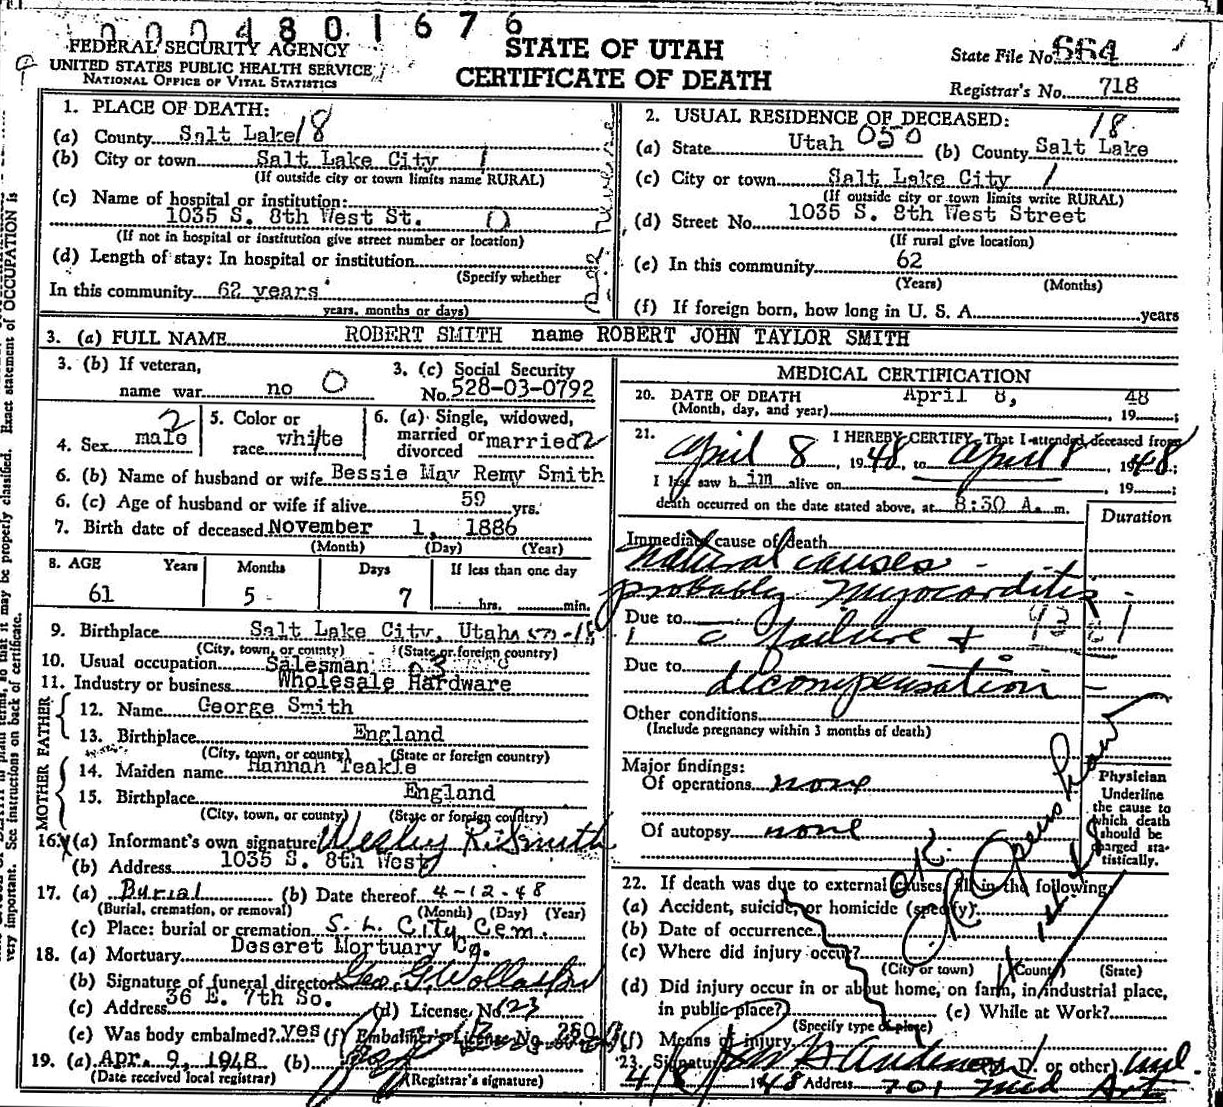 0 0 0 4 8 0 1 6 7 6
FEDERAL SECURITY AGENCY
UNITED STATES PUBLIC HEALTH SERVICE
NATIONAL OFFICE OF VITAL STATISTICS
STATE OF UTAH
CERTIFICATE OF DEATH
State File No. 664
Registrar's No. 718
1. PLACE OF DEATH:
(a) County Salt Lake 18
(b) City or town Salt Lake City 1
(If outside city or town limits name RURAL)
(c) Name of hospital or institution:
1035 S. 8th West St. 0
(If not in hospital or institution give street number or location)
(d) Length of stay: In hospital or institution
(Specify whether
In this community 62 years
years, months or days)
2. USUAL RESIDENCE OF DECEASED:
(a) State Utah 050 (b) County Salt Lake 18
(c) City or town Salt Lake City 1
(If outside city or town limits write RURAL)
(d) Street No. 1035 S. 8th West Street
(If rural give location)
(e) In this community 62
(Years) (Months)
(f) If foreign born, how long in U. S. A. years
3. (a) FULL NAME ROBERT SMITH name ROBERT JOHN TAYLOR SMITH
3. (b) If veteran,
name war no 0
3. (c) Social Security
No. 528-03-0792
4. Sex male 2
5. Color or
race white
6. (a) Single, widowed,
married or
divorced married 2
6. (b) Name of husband or wife Bessie May Remy Smith
6. (c) Age of husband or wife if alive 59 yrs.
7. Birth date of deceased November 1, 1886
(Month) (Day) (Year)
8. AGE Years Months Days If less than one day
61 5 7 hrs. min.
9. Birthplace Salt Lake City, Utah
(City, town, or county) (State or foreign country)
10. Usual occupation Salesman
11. Industry or business Wholesale Hardware
FATHER
12. Name George Smith
13. Birthplace England
(City, town, or county) (State or foreign country)
MOTHER
14. Maiden name Hannah Teakle
15. Birthplace England
(City, town, or county) (State or foreign country)
16. (a) Informant's own signature Wesley R. Smith
(b) Address 1035 S. 8th West
17. (a) Burial (b) Date thereof 4-12-48
(Burial, cremation, or removal) (Month) (Day) (Year)
(c) Place: burial or cremation S. L. City Cem.
18. (a) Mortuary Deseret Mortuary Co.
(b) Signature of funeral director
(c) Address 36 E. 7th So. (d) License No. 123
(e) Was body embalmed? yes (f) Embalmer's License No.
19. (a) Apr. 9, 1948 (b)
(Date received local registrar) (Registrar's signature)
MEDICAL CERTIFICATION
20. DATE OF DEATH April 8, 48
(Month, day, and year) 19 ;
21. I HEREBY CERTIFY, That I attended deceased from
April 8, 1948, to April 8, 1948;
I last saw him alive on , 19 ;
death occurred on the date stated above, at 8:30 A. m.
Duration
Immediate cause of death
natural causes -
probably myocarditis
Due to c failure +
Due to decompensation -
Other conditions
(Include pregnancy within 3 months of death)
Major findings:
Of operations none
Of autopsy none
Physician
Underline
the cause to
which death
should be
charged sta-
tistically.
O.K.
22. If death was due to external causes, fill in the following:
(a) Accident, suicide, or homicide (specify)
(b) Date of occurrence
(c) Where did injury occur?
(City or town) (County) (State)
(d) Did injury occur in or about home, on farm, in industrial place,
in public place? (e) While at Work?
(Specify type of place)
(f) Means of injury
23. Signature (M. D. or other) md.
4/8 1948 Address 701 Med Arts
very important. See instructions on back of certificate.
so that it may be properly classified. Exact statement of OCCUPATION is